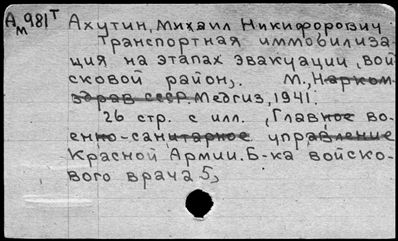 Ам981т Ахутин, Михаил Никифорович
Транспортная иммобилиза-
ция на этапах эвакуации, вой
сковой район,. М., Нарком-
здрав ссср. Медгиз, 1941.
26 стр. с илл. (Главное во-
енно-санитарное управление
Красной Армии. Б-ка войско-
вого врача 5,